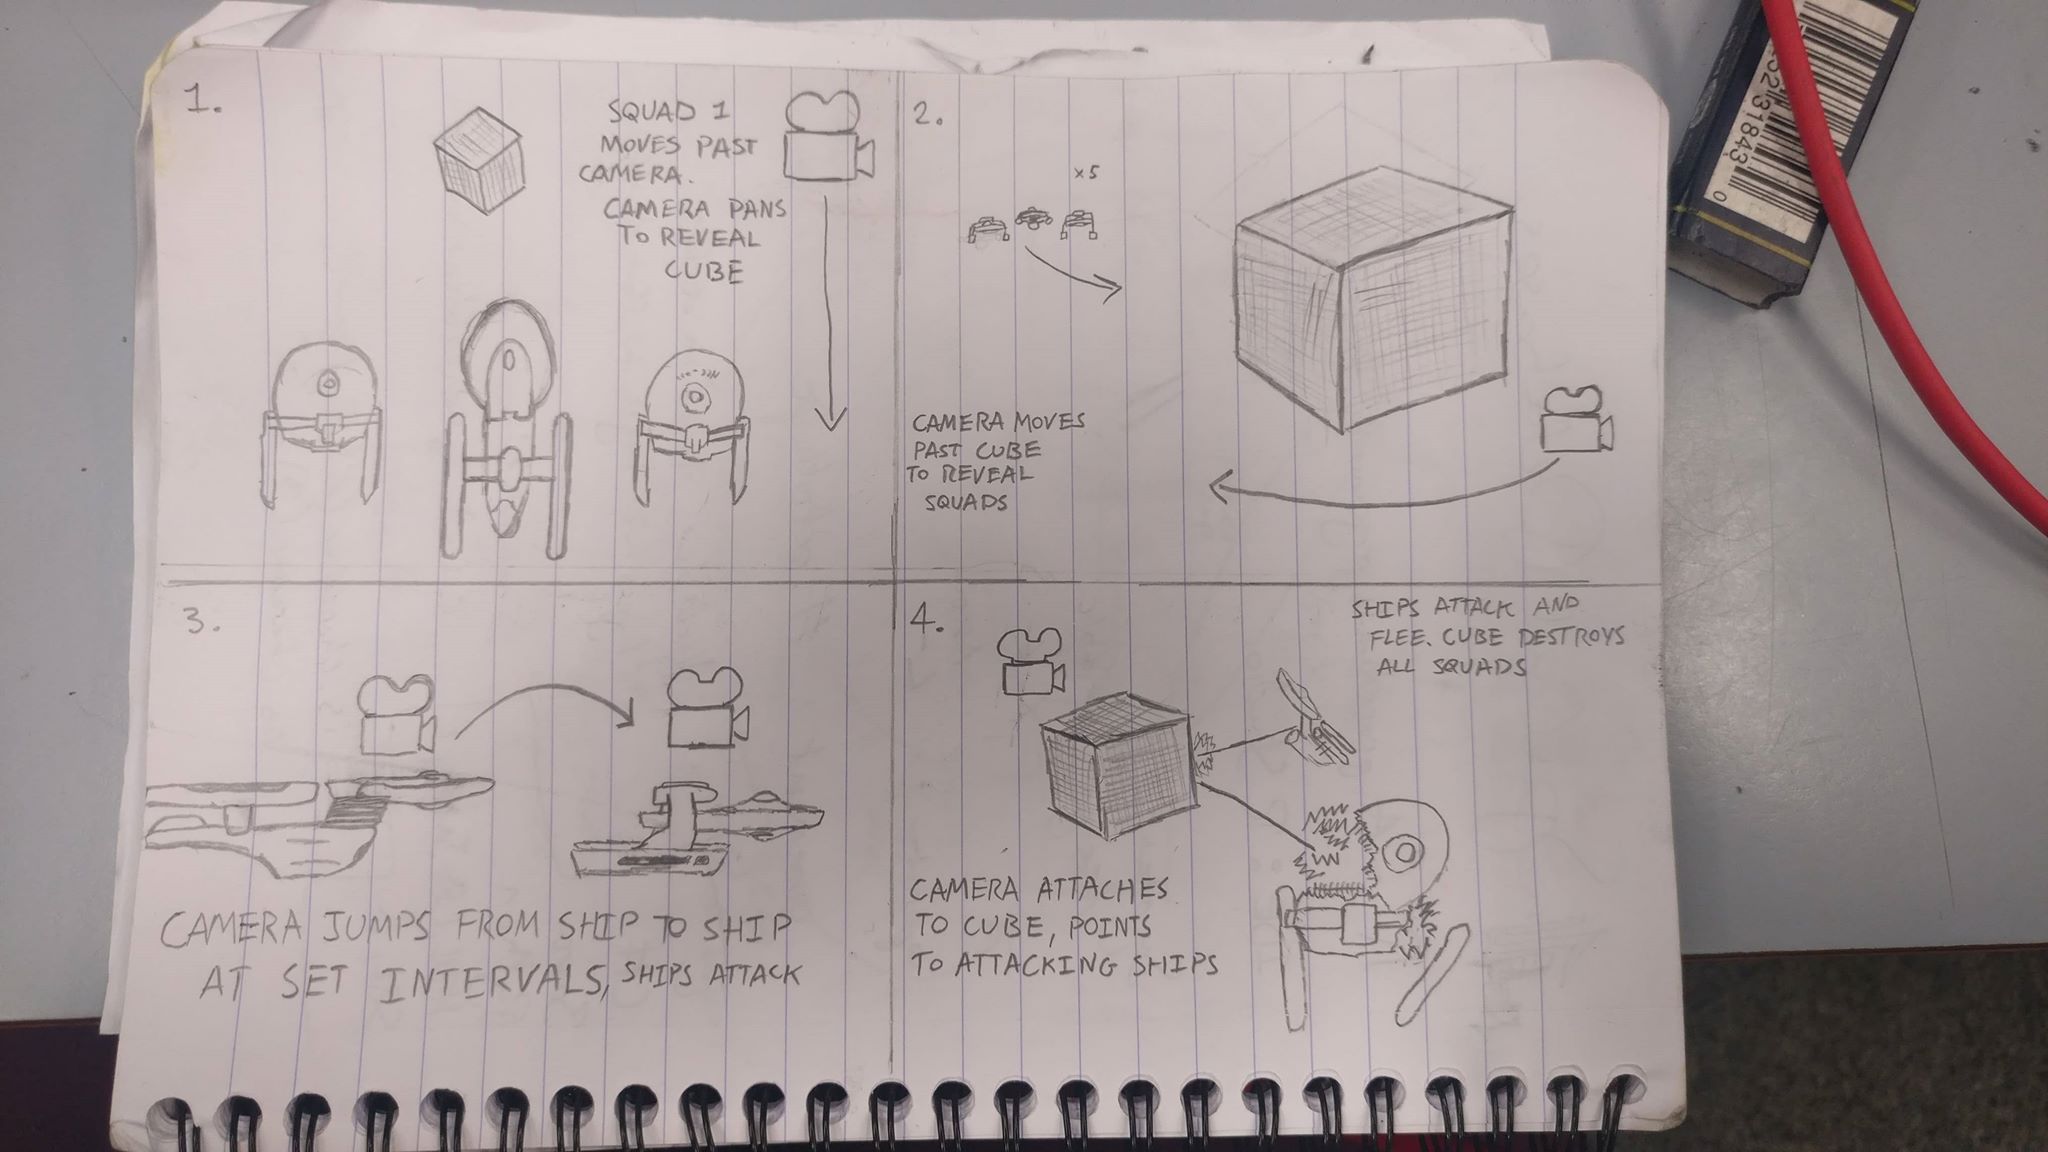 1.
SQUAD 1
MOVES PAST
CAMERA.
CAMERA PANS
TO REVEAL
CUBE
2.
x5
CAMERA MOVES
PAST CUBE
TO REVEAL
SQUADS
3.
CAMERA JUMPS FROM SHIP TO SHIP
AT SET INTERVALS, SHIPS ATTACK
4.
SHIPS ATTACK AND
FLEE. CUBE DESTROYS
ALL SQUADS
CAMERA ATTACHES
TO CUBE, POINTS
TO ATTACKING SHIPS
52 31843 0